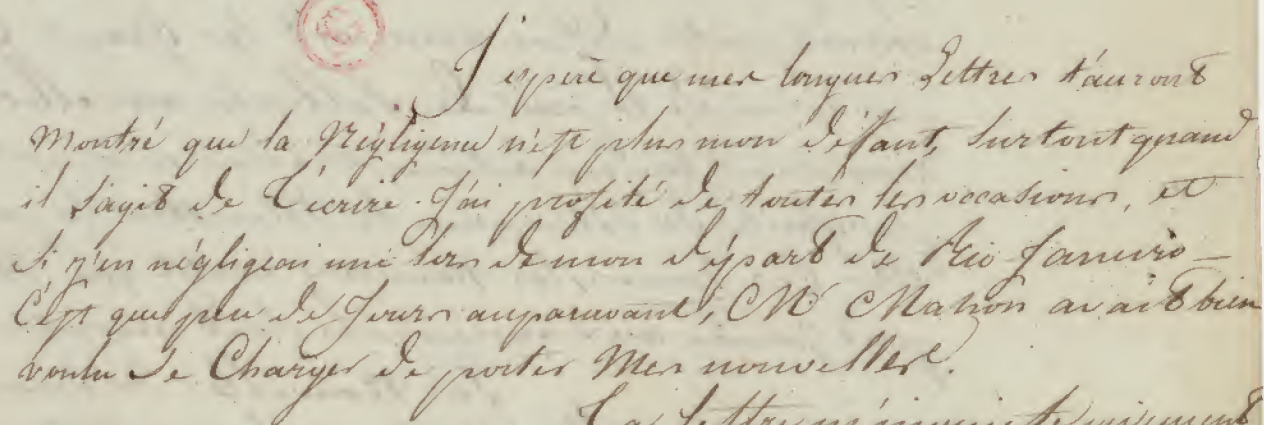 J'espère que mes longues Lettres t'auront
Montré que la Négligence n'est plus mon défaut, surtout quand
il s'agit de t'écrire. J'ai profité de toutes les occasions, et
Si j'en négligeai une lors de mon départ de Rio Janeiro –
C'est que peu de Jours auparavant, Mr Mahon avait bien
voulu se Charger de porter Mes nouvelles.
Ta Lettre